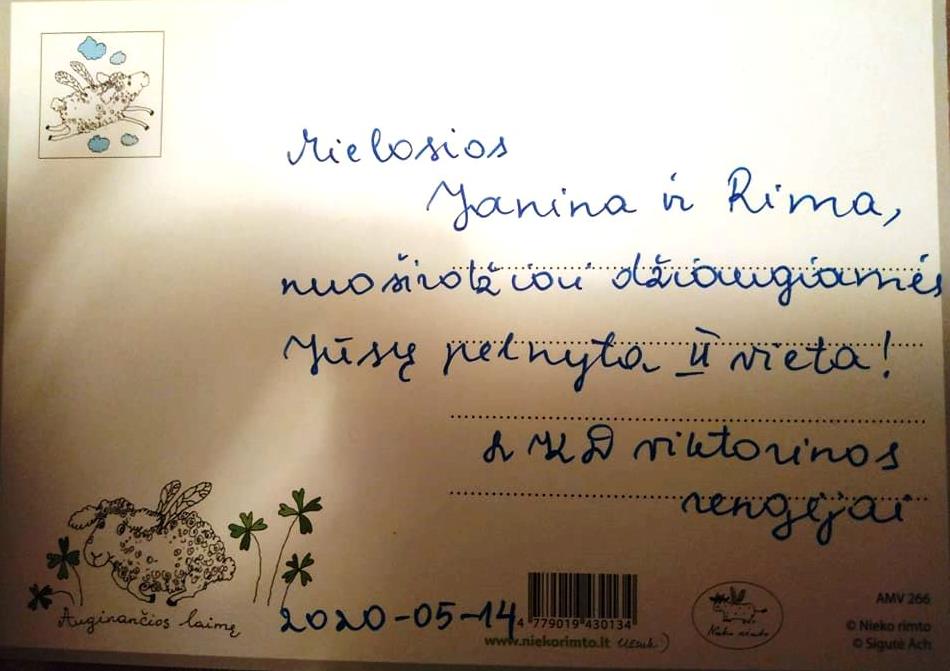 Mielosios
Janina ir Rima,
nuoširdžiai džiaugiamės
Jūsų pelnyta II vieta!
LKD viktorinos
rengėjai
Auginančios laimę
2020-05-14
4 779019 430134
www.niekorimto.lt
Nieko rimto
AMV 266
© Nieko rimto
© Sigutė Ach